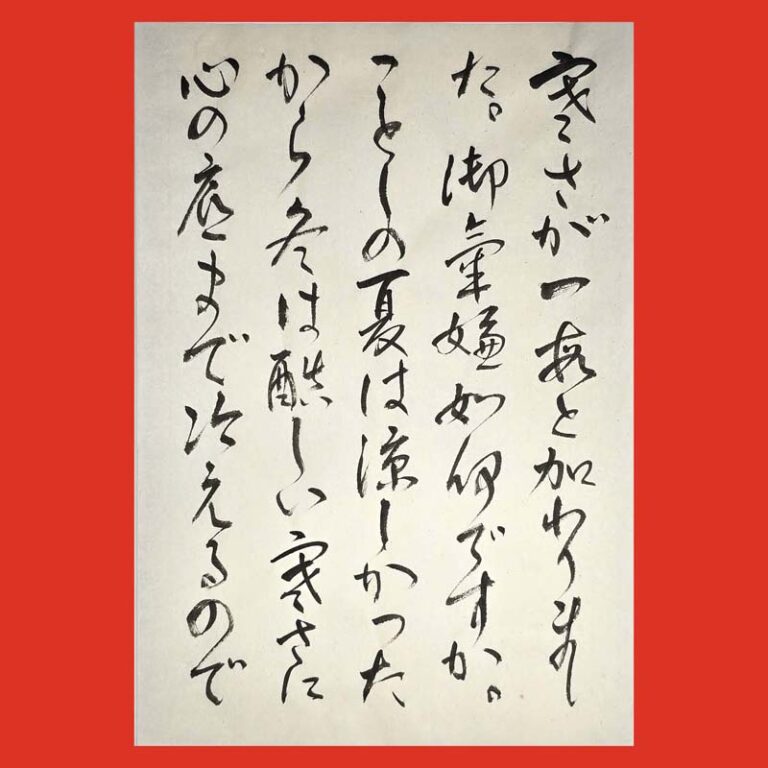 寒さが一段と加わりまし
た。御氣嫌如何ですか。
ことしの夏は涼しかった
から冬は酷しい寒さに
心の底まで冷えるので